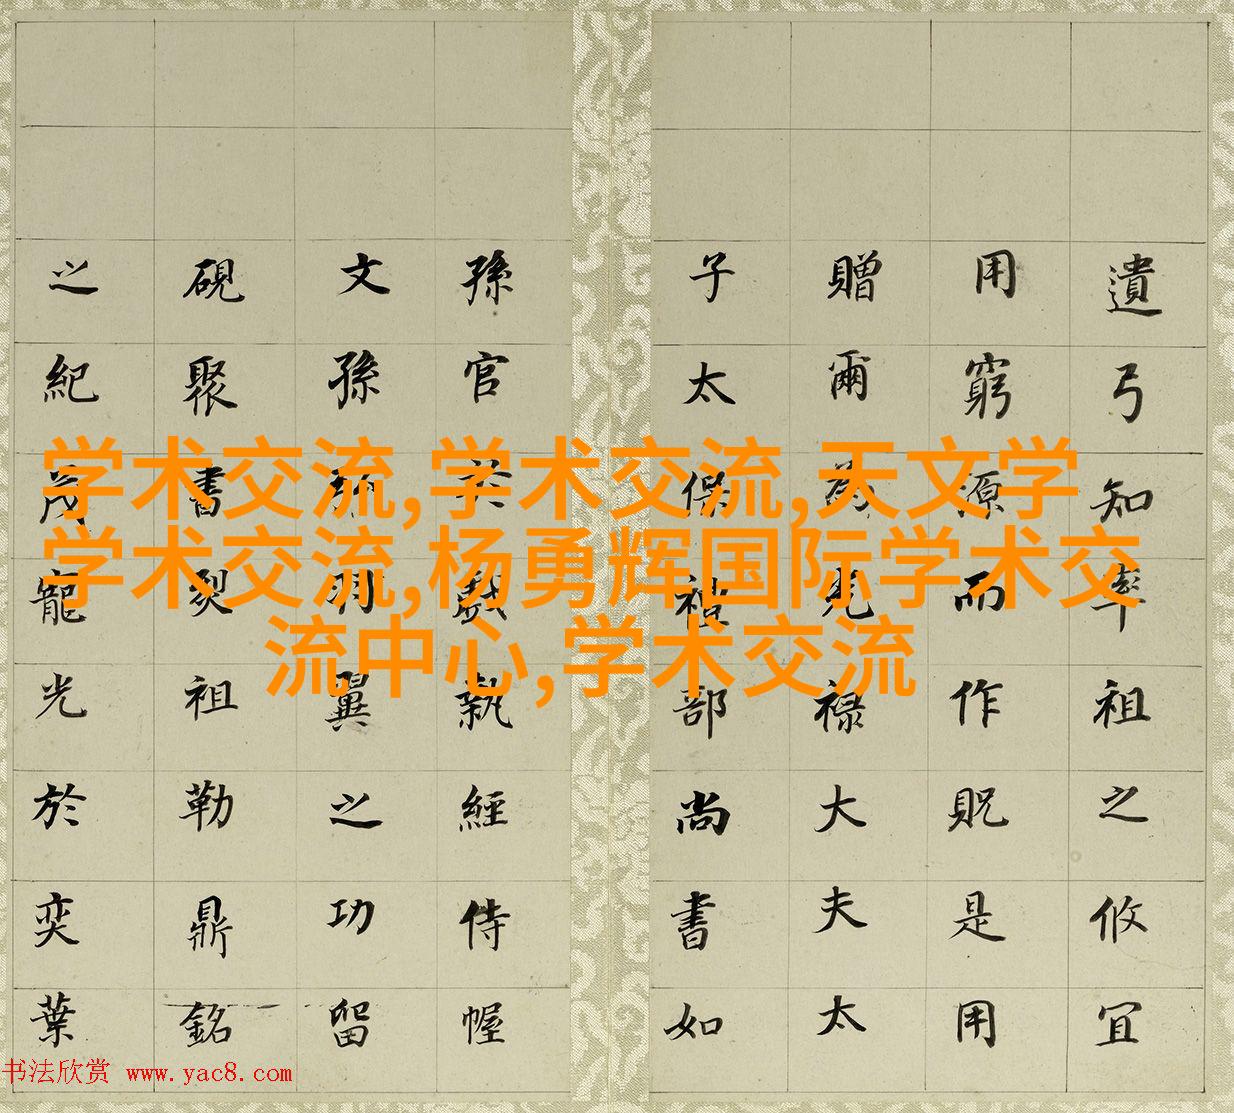 遺弓知率祖之攸宜
用窮源而作貺是用
贈爾光祿大夫太
子太保禮部尚書如
孫官於戲執經侍幄
文孫羽翼之功留
硯聚書祖勒鼎銘
之紀茂寵光於奕葉
学术交流,学术交流,天文学
学术交流,杨勇辉国际学术交
流中心,学术交流
书法欣赏 www.yac8.com